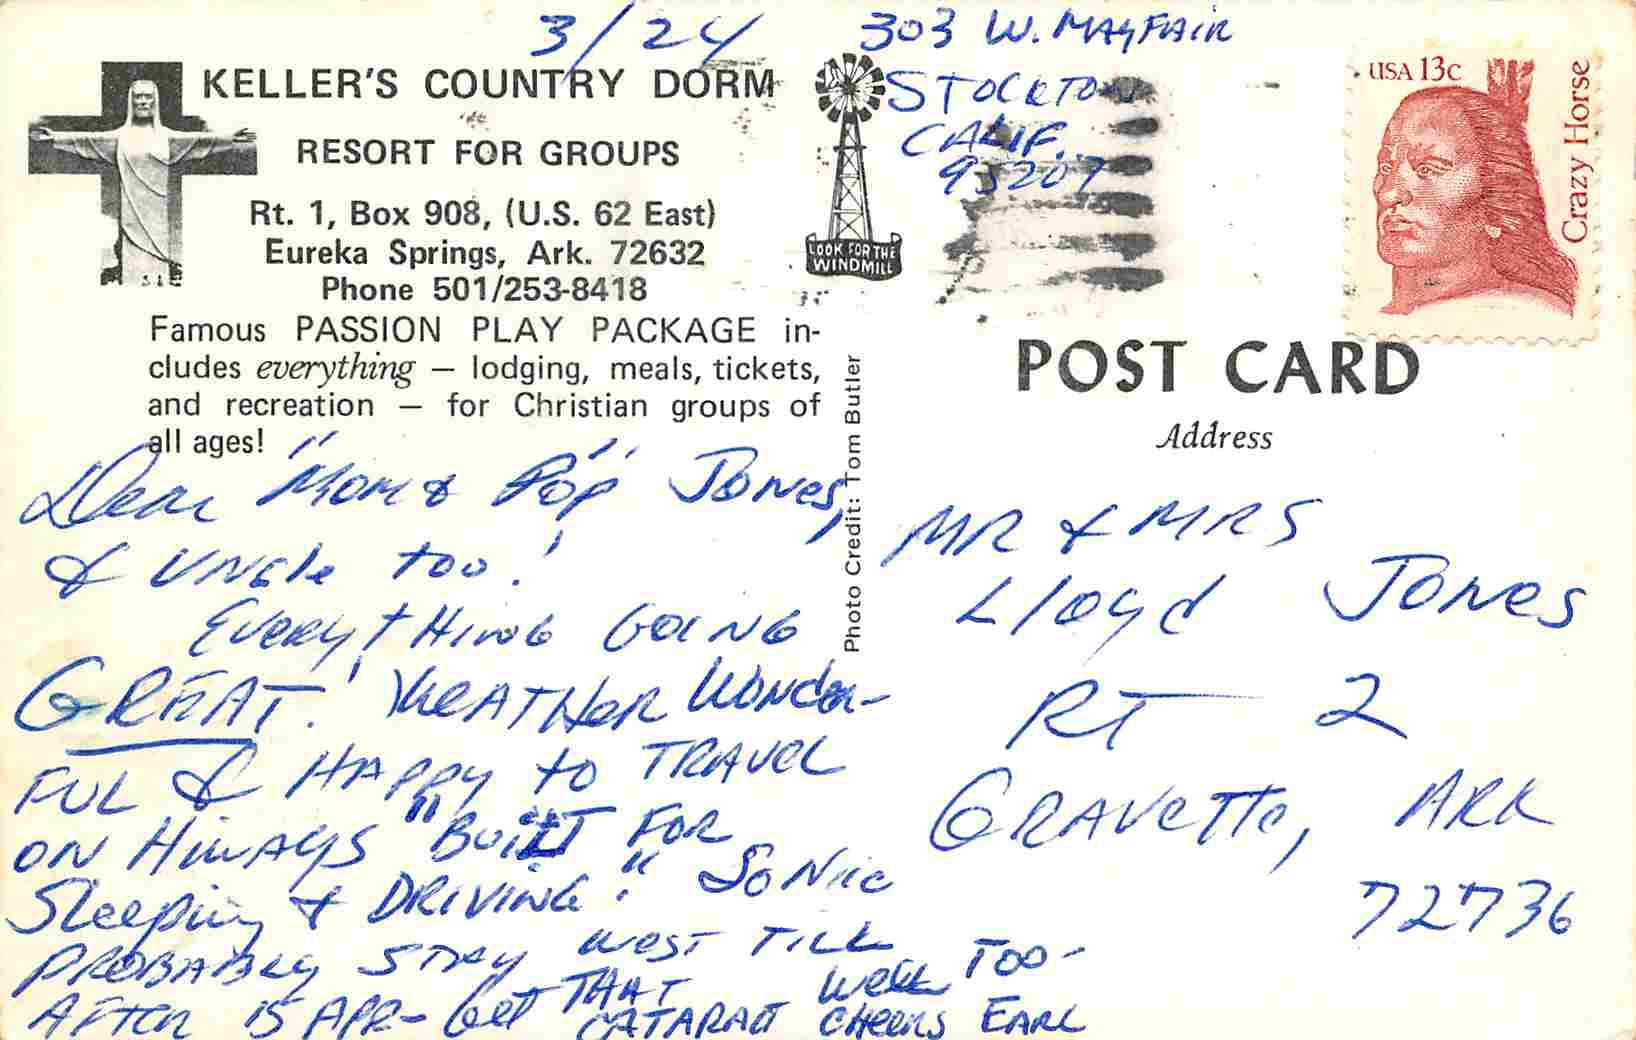 3/24
303 W. MAYFAIR
STOCKTON
CALIF.
95207
KELLER'S COUNTRY DORM
RESORT FOR GROUPS
Rt. 1, Box 908, (U.S. 62 East)
Eureka Springs, Ark. 72632
Phone 501/253-8418
Famous PASSION PLAY PACKAGE in-
cludes everything — lodging, meals, tickets,
and recreation — for Christian groups of
all ages!
LOOK FOR THE
WINDMILL
USA 13c
Crazy Horse
POST CARD
Address
Photo Credit: Tom Butler
Dear "Mom & Pop" Jones,
& Uncle too!
EVERYTHING GOING
GREAT! WEATHER WONDER-
FUL & HAPPY to TRAVEL
ON HiWAYS "BUILT FOR
Sleeping & DRIVING." So
PROBABLY STAY WEST TILL
AFTER 15 APR- Get THAT
CATARACT WELL TOO-
CHEERS EARL
MR & MRS
Lloyd Jones
RT 2
GRAVETTE, ARK
72736